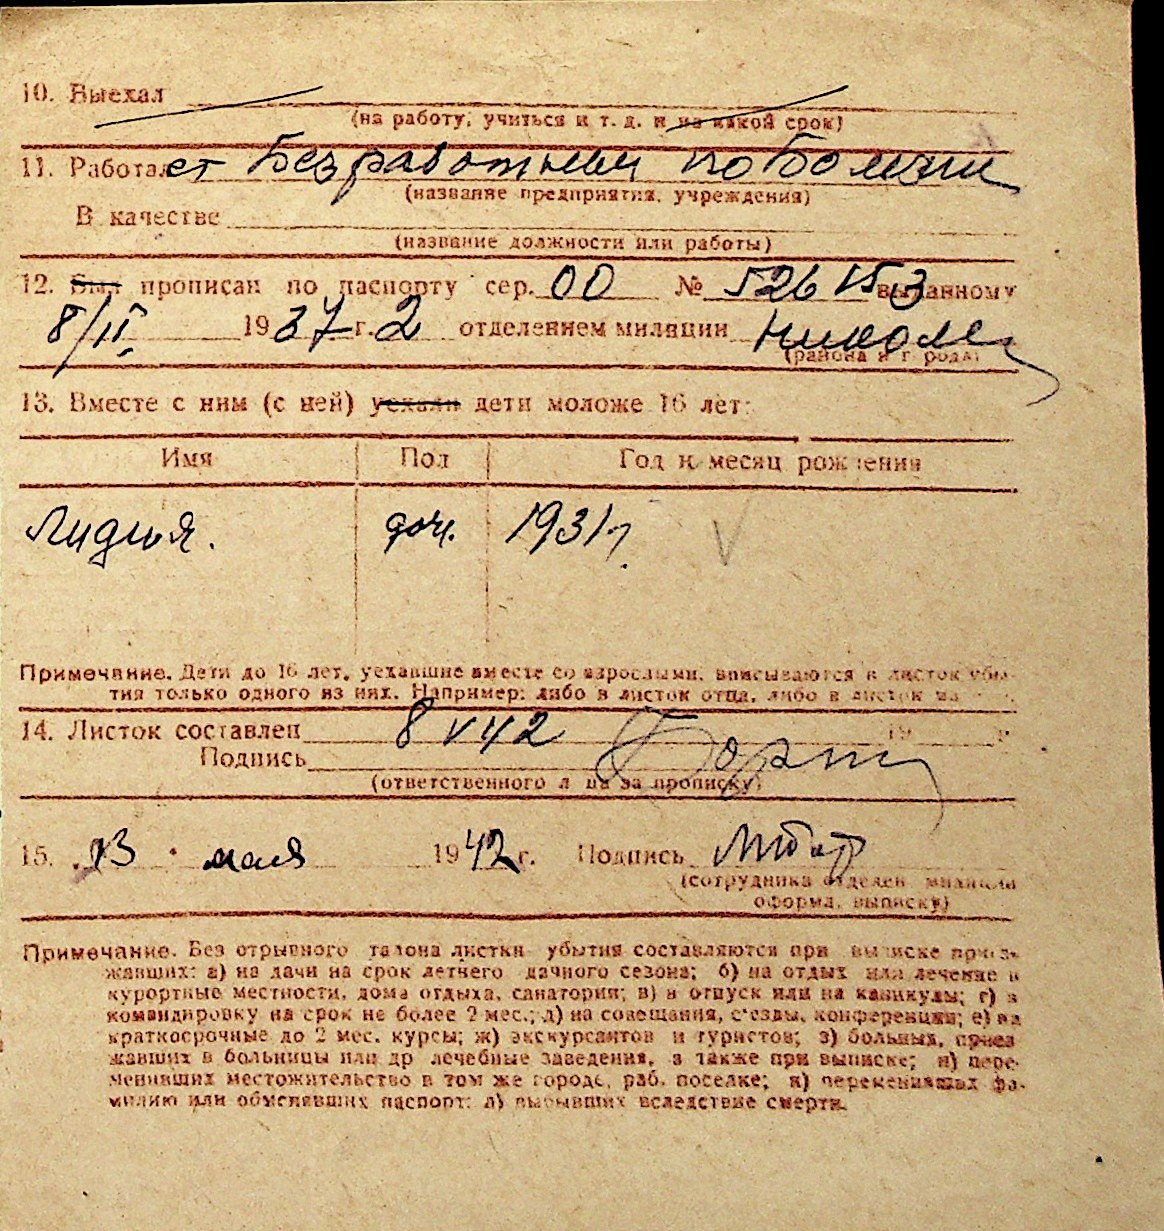 10. Выехал
(на работу, учиться и т. д. и на какой срок)
11. Работает Безработный по болезни
(название предприятия, учреждения)
В качестве
(название должности или работы)
12. Был прописан по паспорту сер. 00 № 526153 выданному
8/II 1937 г. 2 отделением милиции Николаев
(района и города)
13. Вместе с ним (с ней) уехали дети моложе 16 лет:
Имя Пол Год и месяц рождения
Лидия. доч. 1931 г.
Примечание. Дети до 16 лет, уехавшие вместе со взрослыми, вписываются в листок убы-
тия только одного из них. Например: либо в листок отца, либо в листок
14. Листок составлен 8 V 42 19 г
Подпись
(ответственного лица за прописку)
15. 13 мая 1942 г. Подпись
(сотрудника отделен. милиции
оформл. выписку)
Примечание. Без отрывного талона листки убытия составляются при выписке приез-
жавших: а) на дачи на срок летнего дачного сезона; б) на отдых или лечение в
курортные местности, дома отдыха, санатории; в) в отпуск или на каникулы; г) в
командировку на срок не более 2 мес.; д) на совещания, с'езды, конференции; е) на
краткосрочные до 2 мес. курсы; ж) экскурсантов и туристов; з) больных, приез
жавших в больницы или др лечебные заведения, а также при выписке; и) пере-
менивших местожительство в том же городе, раб. поселке; к) переменивших фа-
милию или обменявших паспорт; л) выбывших вследствие смерти.